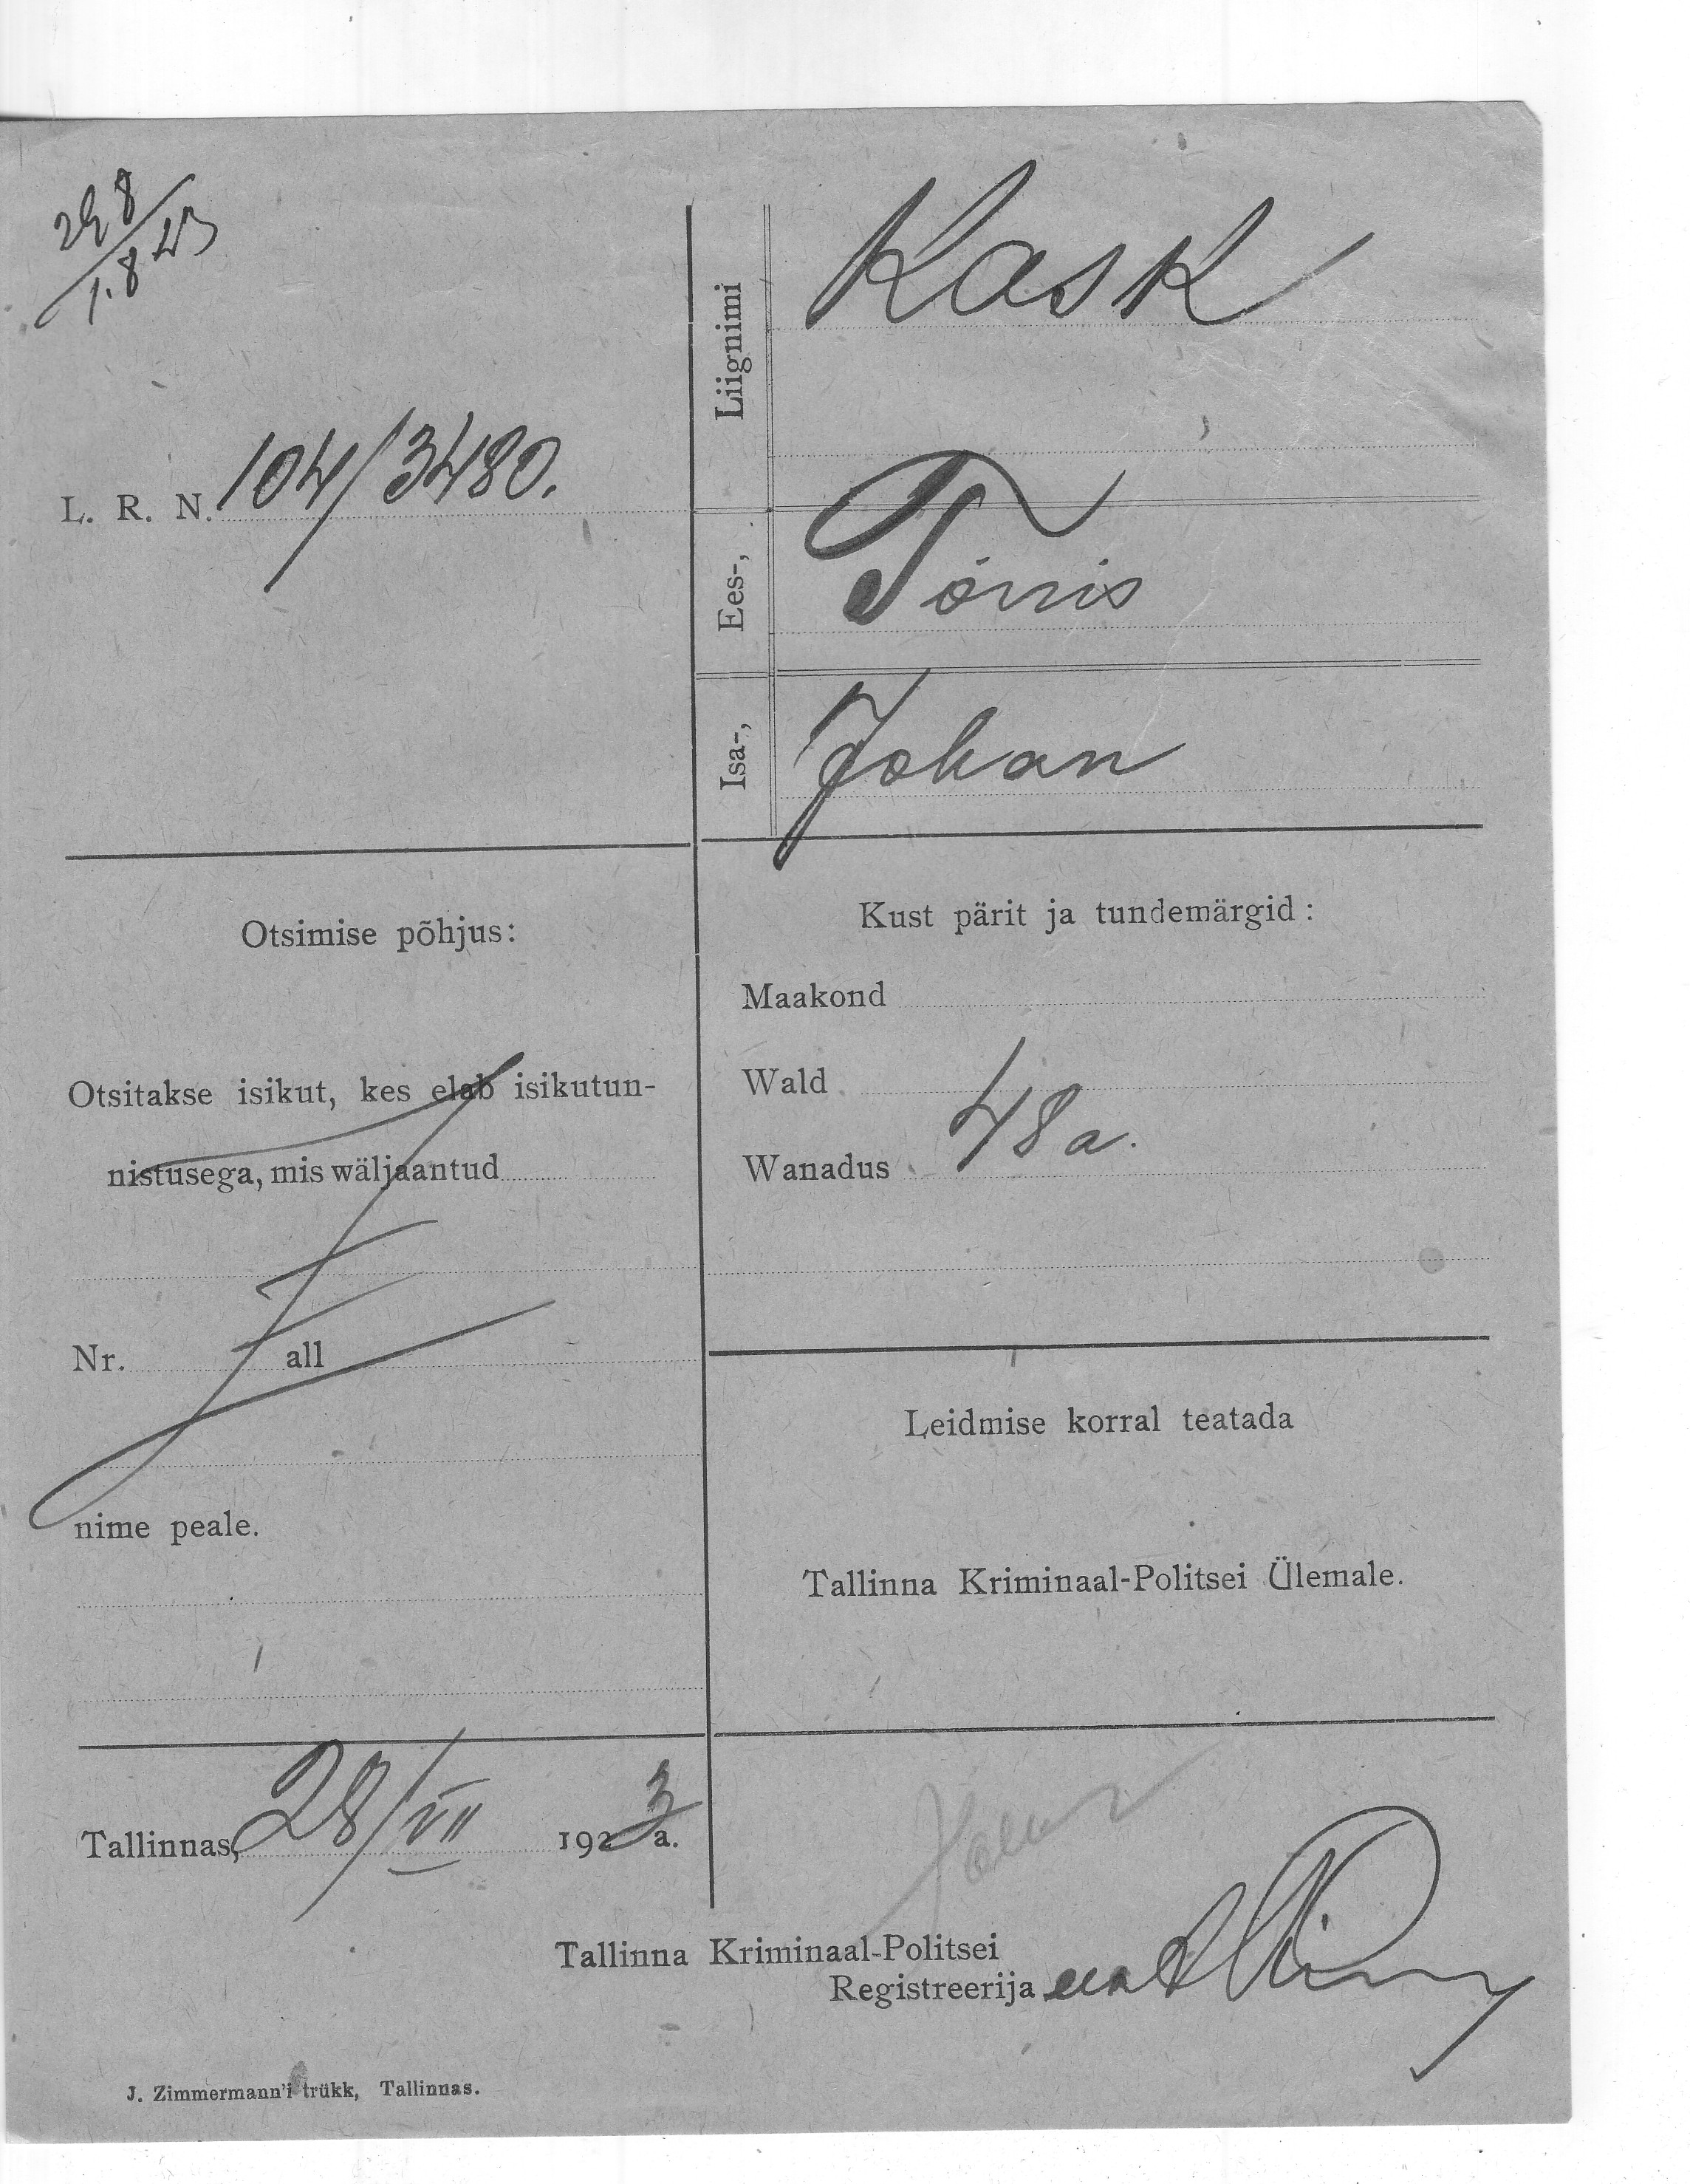 298
1.8 23
L. R. N. 104/3480.
Liignimi Kask
Ees-, Tõnis
Isa-, Johan
Otsimise põhjus:
Otsitakse isikut, kes elab isikutun-
nistusega, mis wäljaantud
Nr. all
nime peale.
Kust pärit ja tundemärgid:
Maakond
Wald
Wanadus 48 a.
Leidmise korral teatada
Tallinna Kriminaal-Politsei Ülemale.
Tallinnas, 28/VII 1923 a.
Tallinna Kriminaal-Politsei
Registreerija
J. Zimmermann'i trükk, Tallinnas.